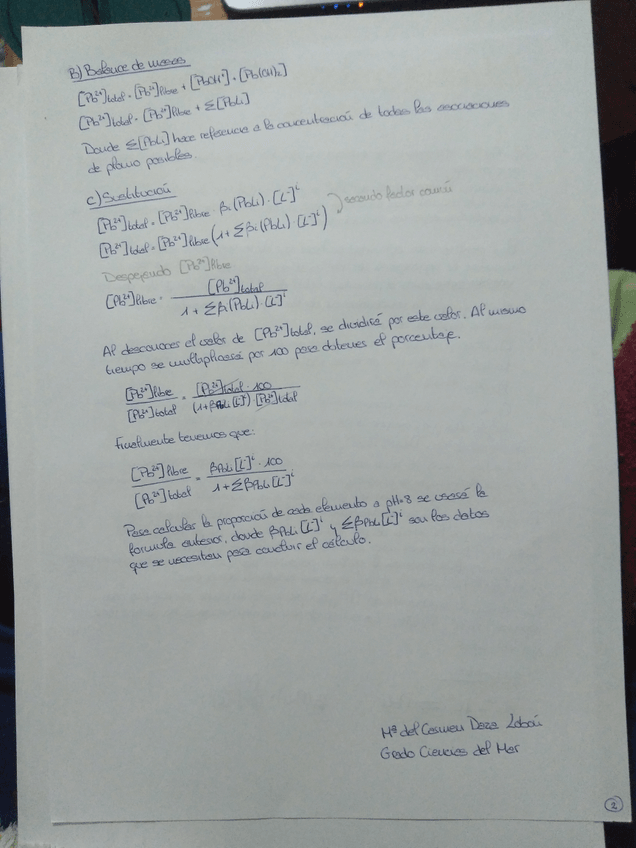 B) Balance de masas
[Pb²⁺]total = [Pb²⁺]libre + [PbOH⁺] + [Pb(OH)₂]
[Pb²⁺]total = [Pb²⁺]libre + Σ[PbLi]
Donde Σ[PbLi] hace referencia a la concentración de todas las asociaciones
de plomo posibles.
C) Sustitución
[Pb²⁺]total = [Pb²⁺]libre · βi(PbLi) · [L⁻]ⁱ
[Pb²⁺]total = [Pb²⁺]libre (1 + Σβi(PbLi) · [L⁻]ⁱ) sacando factor común
Despejando [Pb²⁺]libre
[Pb²⁺]libre = [Pb²⁺]total / 1 + Σβi(PbLi)·[L⁻]ⁱ
Al desconocer el valor de [Pb²⁺]total, se dividirá por este valor. Al mismo
tiempo se multiplicará por 100 para obtener el porcentaje.
[Pb²⁺]libre / [Pb²⁺]total = [Pb²⁺]total · 100 / (1+βPbLi[L⁻]ⁱ) · [Pb²⁺]total
Finalmente tenemos que:
[Pb²⁺]libre / [Pb²⁺]total = βPbLi[L⁻]ⁱ · 100 / 1 + ΣβPbLi[L⁻]ⁱ
Para calcular la proporción de cada elemento a pH=8 se usará la
formula anterior, donde βPbLi[L⁻]ⁱ y ΣβPbLi[L⁻]ⁱ son los datos
que se necesitan para concluir el cálculo.
Mª del Carmen Daza
Grado Ciencias del Mar
2